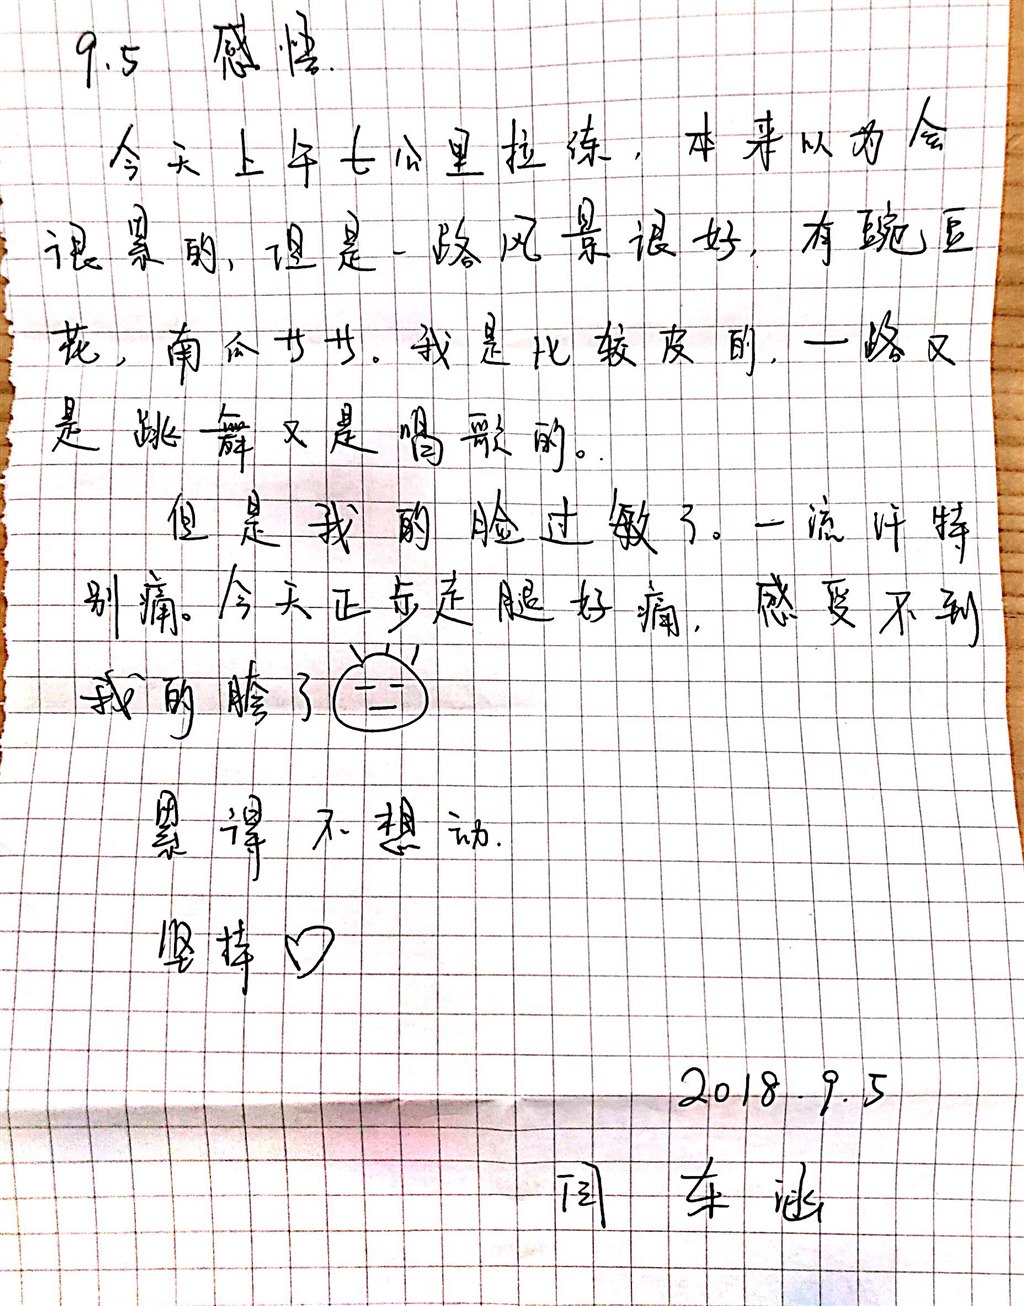 9.5 感悟.
今天上午七公里拉练，本来以为会
很累的，但是一路风景很好，有豌豆
花，南瓜艹艹。我是比较皮的，一路又
是跳舞又是唱歌的。
但是我的脸过敏了。一流汗特
别痛。今天正步走腿好痛，感受不到
我的胯了
累得不想动.
坚持♡
2018.9.5
闫东涵